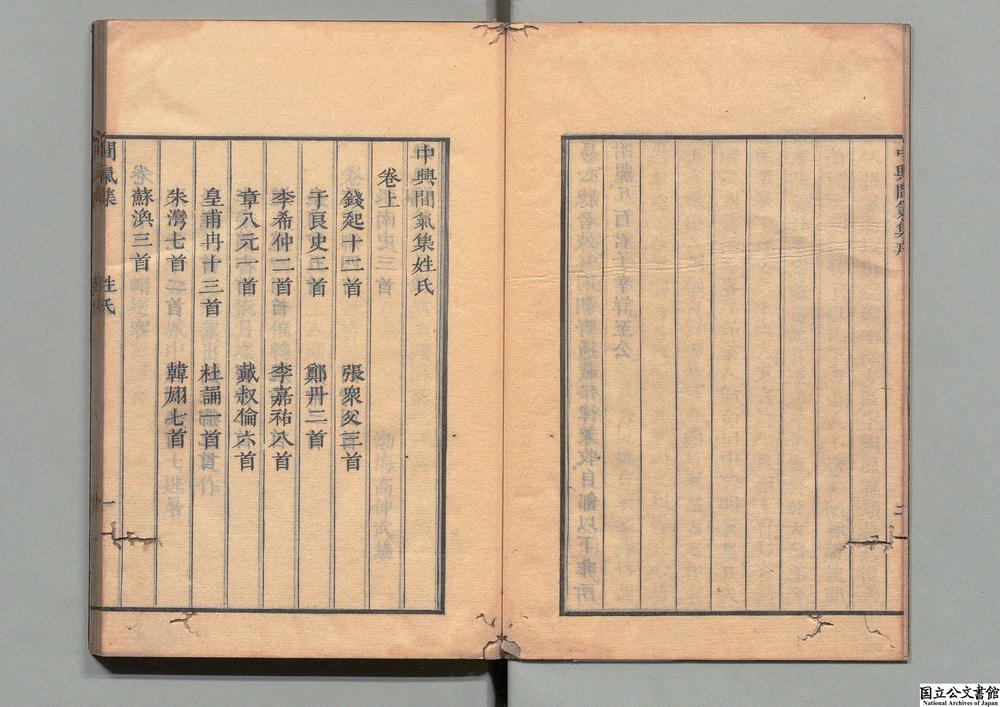 中興間氣集姓氏
卷上
錢起十二首 張衆父三首
于良史二首 鄭丹二首
李希仲二首 李嘉祐八首
章八元一首 戴叔倫六首
皇甫冉十三首 杜誦一首
朱灣七首 韓翃七首
蘇渙三首
間氣集 姓氏 一
中興間氣集序 二
国立公文書館
National Archives of Japan